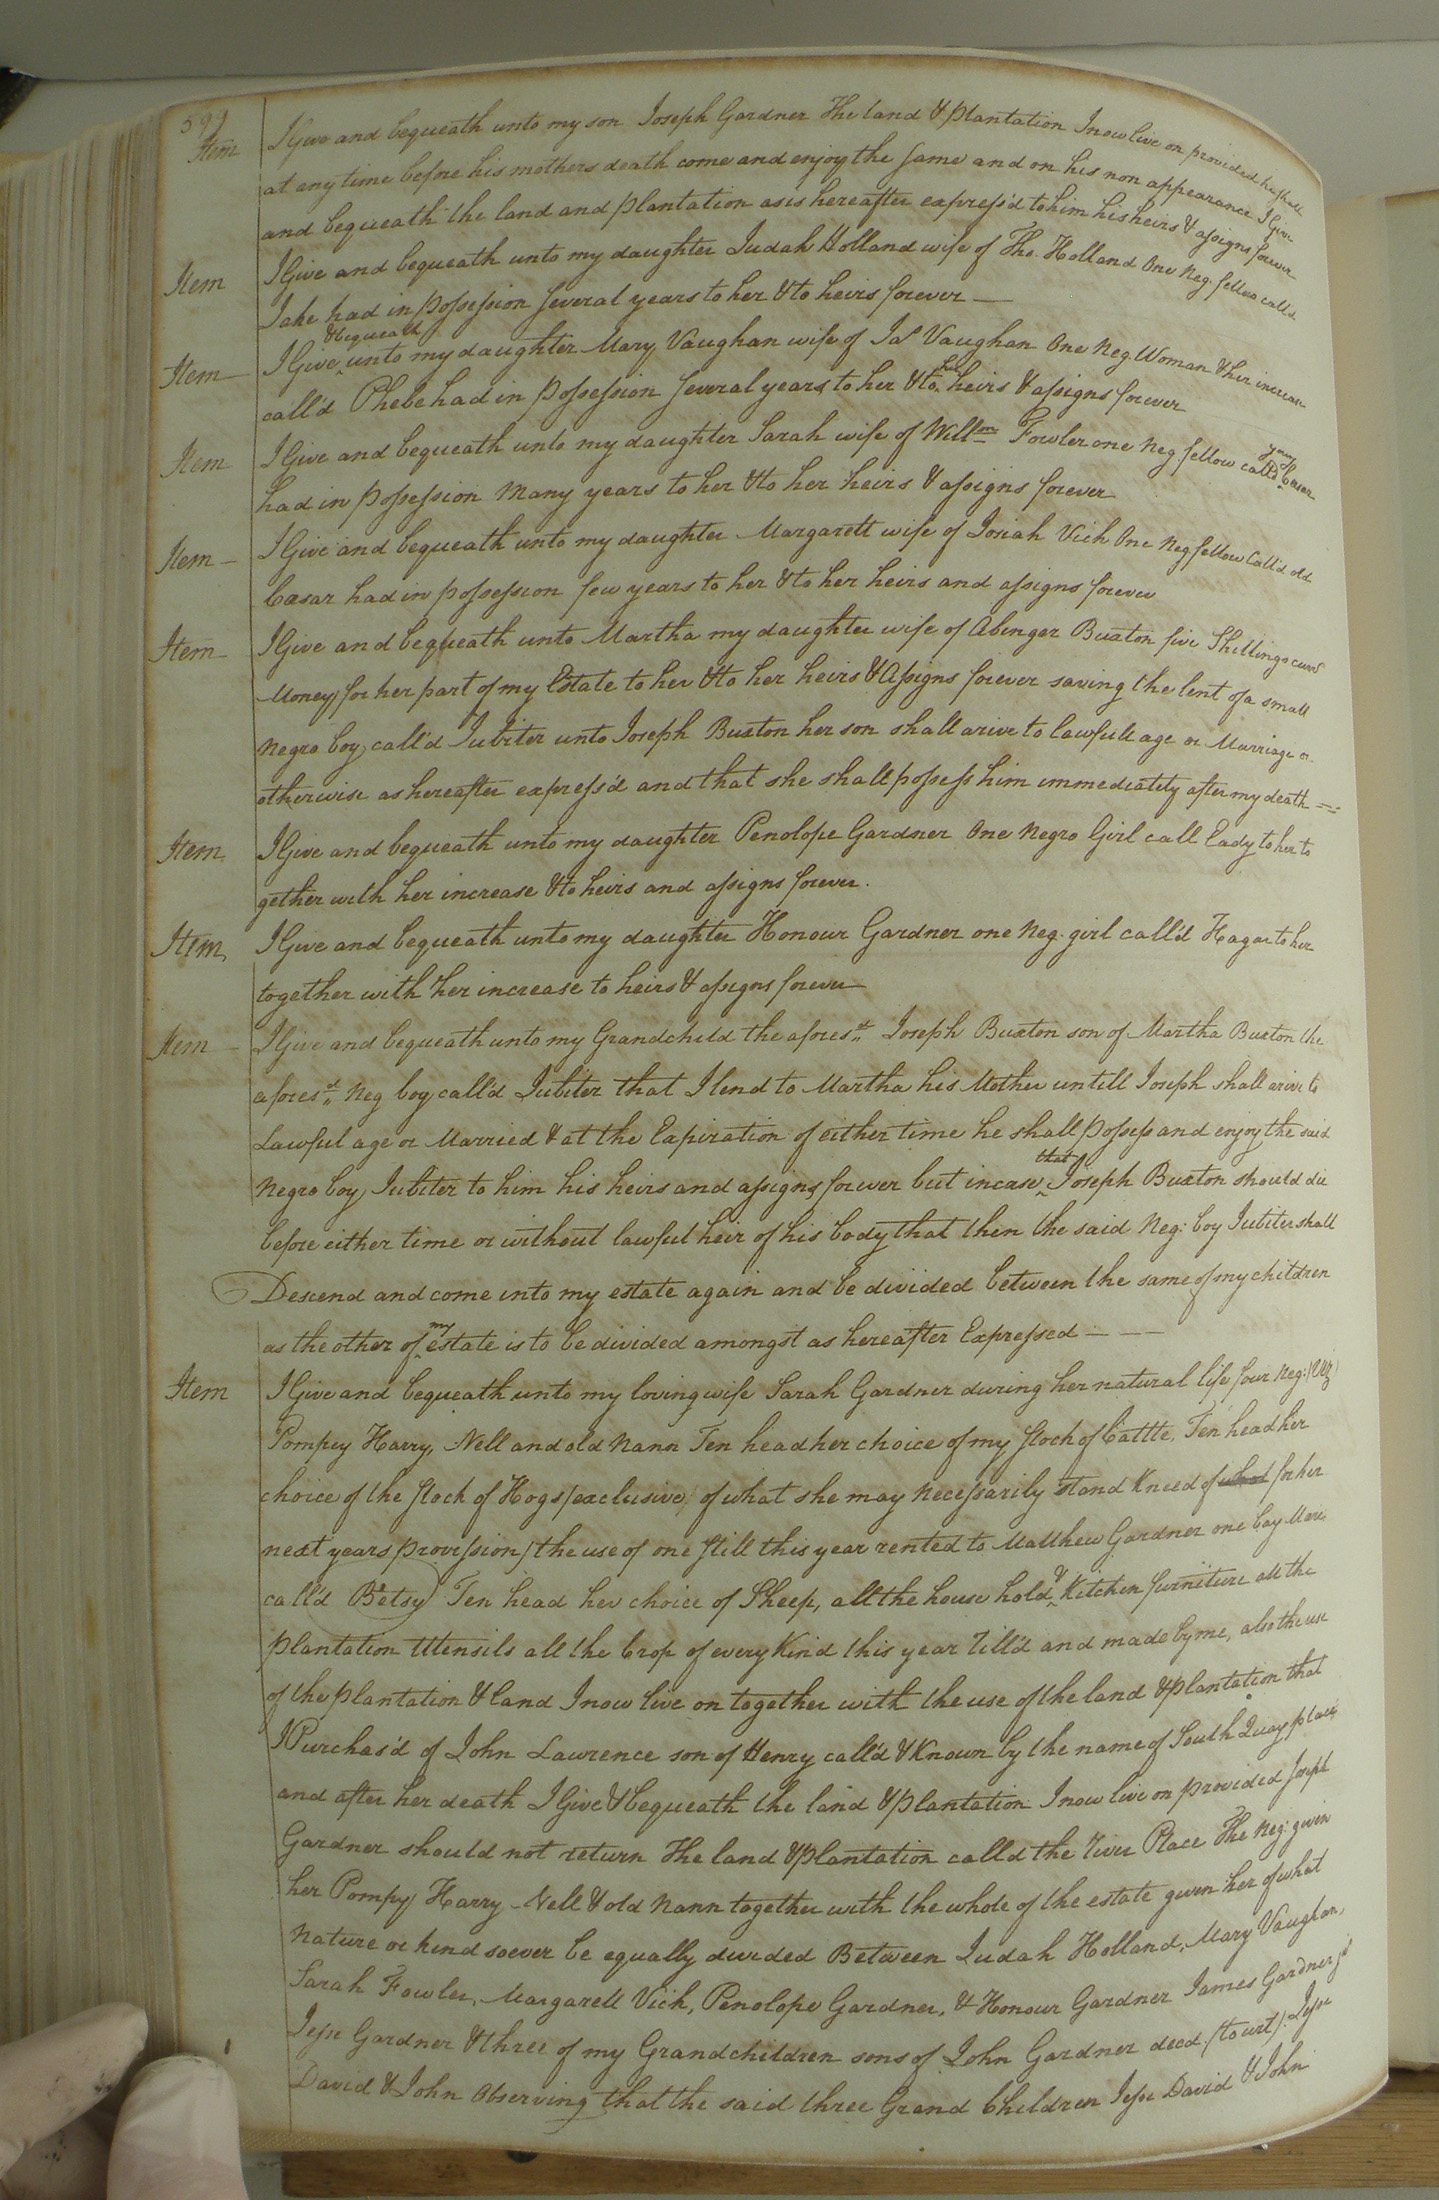 Item I Give and bequeath unto my son Joseph Gardner The land & plantation I now live on provided he shall
at any time before his mothers death come and enjoy the same and on his non appearance I Give
and bequeath the land and plantation as is hereafter express'd to him his heirs & assigns forever
Item I Give and bequeath unto my daughter Judah Holland wife of Tho. Holland One Neg. fellow call'd
Jake had in possession several years to her & to heirs forever —
Item — I Give & bequeath unto my daughter Mary Vaughan wife of Jas Vaughan One Neg. Woman & her increase
call'd Phebe had in possession several years to her & to her heirs & assigns forever
Item I Give and bequeath unto my daughter Sarah wife of Willm Fowler one Neg fellow call'd young Cæsar
had in possession Many years to her & to her heirs & assigns forever
Item — I Give and bequeath unto my daughter Margarett wife of Josiah Vick One Neg fellow Call'd old
Cæsar had in possession few years to her & to her heirs and assigns forever
Item — I Give and bequeath unto Martha my daughter wife of Abinger Buxton five Shillings curt
Money for her part of my Estate to her & to her heirs & Assigns forever saving the lent of a small
Negro boy call'd Jubiter unto Joseph Buxton her son shall arive to lawfull age or Marriage or
otherwise as hereafter express'd and that she shall possess him immediately after my death —
Item I Give and bequeath unto my daughter Penolope Gardner One Negro Girl call Eady to her to
gether with her increase & to heirs and assigns forever.
Item, I Give and bequeath unto my daughter Honour Gardner one Neg. girl call'd Hagar to her
together with her increase to heirs & assigns forever
Item — I Give and bequeath unto my Grandchild the aforesd. Joseph Buxton son of Martha Buxton the
aforesd. Neg boy call'd Jubiter that I lend to Martha his Mother untill Joseph shall arive to
Lawful age or Married & at the Expiration of either time he shall possess and enjoy the said
Negro boy Jubiter to him his heirs and assigns forever but incase that Joseph Buxton should die
before either time or without lawful heir of his body that then the said Neg: boy Jubiter shall
Descend and come into my estate again and be divided between the same of my children
as the other of my estate is to be divided amongst as hereafter Expressed — — —
Item I Give and bequeath unto my loving wife Sarah Gardner during her natural life four Neg: (Viz)
Pompey Harry, Nell and old Nann Ten head her choice of my stock of Cattle, Ten head her
choice of the stock of Hogs (exclusive) of what she may Necessarily stand Kneed of what for her
next years provission) the use of one still this year rented to Matthew Gardner one bay Mare
call'd Betsy Ten head her choice of Sheep, all the house hold & Kitchen furniture all the
plantation Utensils all the Crop of every Kind this year Till'd and made by me, also the use
of the plantation & land I now live on together with the use of the land & plantation that
I Purchas'd of John Lawrence son of Henry call'd & Known by the name of South Quay place
and after her death I Give & bequeath the land & plantation I now live on provided Joseph
Gardner should not return The land & plantation call'd the River Place The Neg: given
her Pompy Harry Nell & old Nann together with the whole of the estate given her of what
Nature or kind soever be equally divided Between Judah Holland, Mary Vaughan,
Sarah Fowler, Margarett Vick, Penolope Gardner, & Honour Gardner James Gardner
Jesse Gardner & three of my Grandchildren sons of John Gardner decd (to wit). Jesse
David & John Observing that the said three Grand Children Jesse David & John